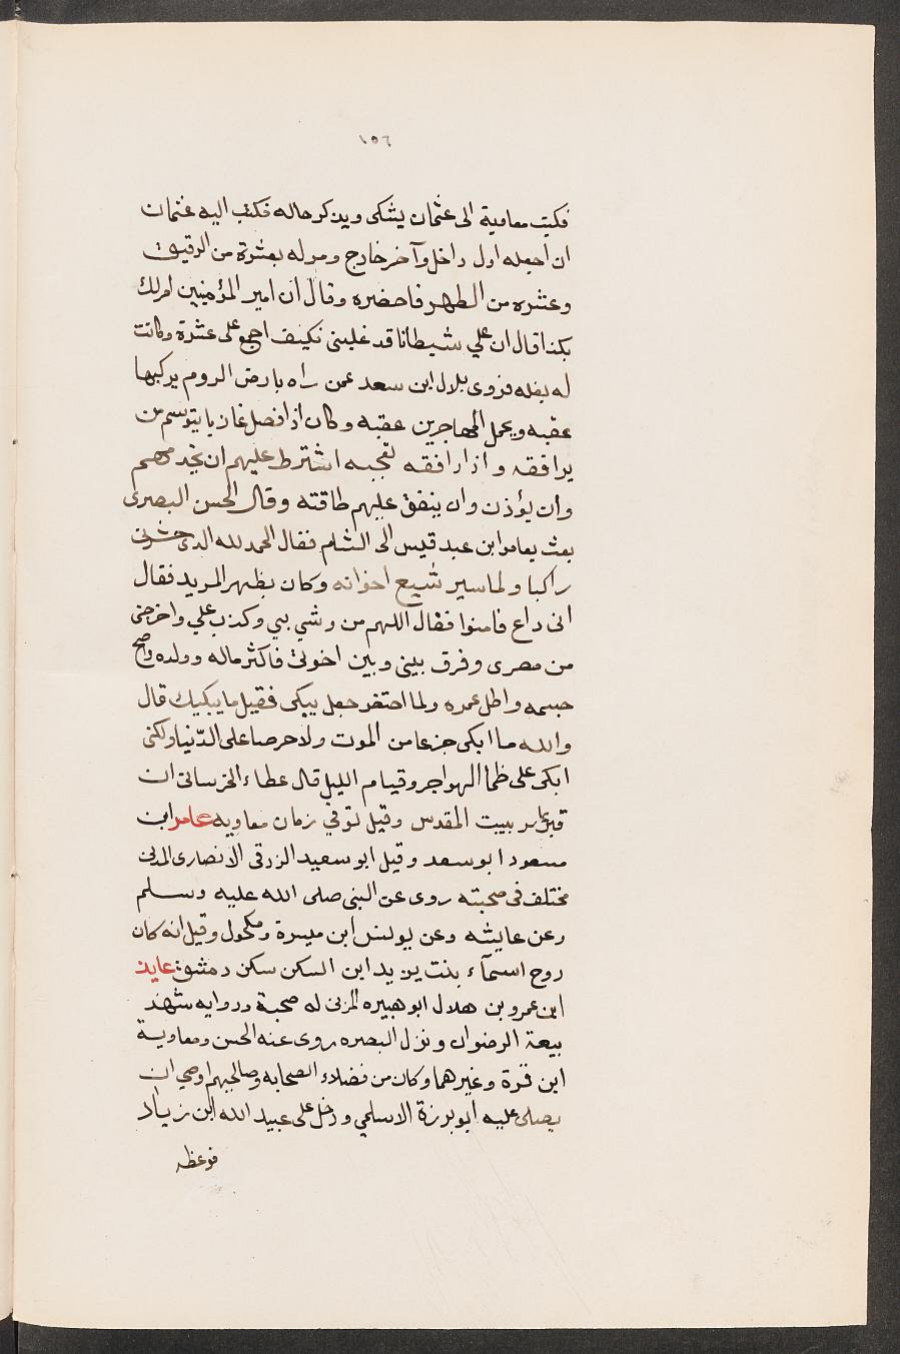 ١٥٦
فكتب معاوية الى عثمان يشكى ويذكر حاله فكتب اليه عثمان
ان اجعله اول داخل وآخر خارج ومر له بعشرة من الرقيق
وعشره من الطهر فاحضره وقال ان امير المؤمنين امر لك
بكذا قال ان علي شيطانا قد غلبنى فكيف اجمع على عشرة وكانت
له بغله فروى بلال ابن سعد عمن راه بارض الروم يركبها
عقبه ويحمل المهاجرين عقبه وكان اذا فصل غازيا يتوسم من
يرافقه واذا رافقه اشترط عليهم ان يخدمهم
وان يؤذن وان ينفق عليهم طاقته وقال الحسن البصرى
بعث بعامر ابن عبد قيس الى الشام فقال الحمد لله الذى حشرنى
راكبا ولما سير شيع اخوانه وكان بظهر المربد فقال
انى داع فامنوا فقال اللهم من وشي بي وكذب علي واخرجنى
من مصرى وفرق بينى وبين اخوتى فاكثر ماله وولده واصح
جسمه واطل عمره ولما احتضر جعل يبكى فقيل ما يبكيك قال
والله ما ابكى جزعا من الموت ولا حرصا على الدّنيا ولكنى
ابكى على ظمأ الهواجر وقيام الليل قال عطاء الخرسانى ان
قبره ببيت المقدس وقيل توفي زمان معاويه عامر ابن
مسعود ابو سعد وقيل ابو سعيد الزرقى الانصارى المدنى
مختلف فى صحبته روى عن النبى صلى الله عليه وسلم
وعن عايشه وعن يونس ابن ميسرة ومكحول وقيل انه كان
زوج اسمآء بنت يزيد ابن السكن سكن دمشق عايذ
ابن عمرو بن هلال ابو هبيره المزنى له صحبة وروايه شهد
بيعة الرضوان ونزل البصره روى عنه الحسن ومعاوية
ابن قرة وغيرهما وكان من فضلاء الصحابه وصالحيهم اوصي ان
يصلى عليه ابو برزة الاسلمي ودخل على عبيد الله ابن زياد
فوعظه